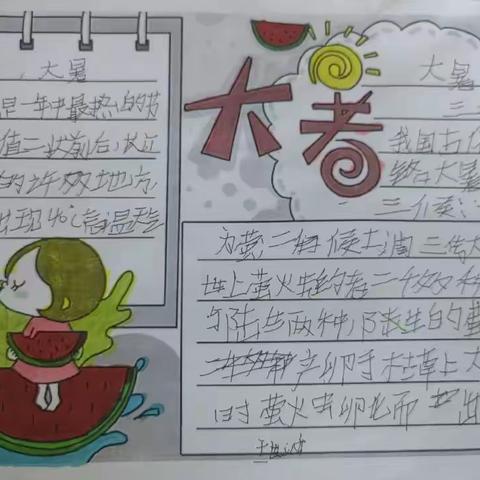 大暑
一年中最热的节
值二伏前后,长江
的许多地方,
出现40℃高温天
大暑
大暑
三
我国古代
大暑
三候:
为萤二候土润三候大
陆上萤火虫约有二千多种
陆生两种,陆生的萤
产卵于枯草上大
时萤火虫卵化而出